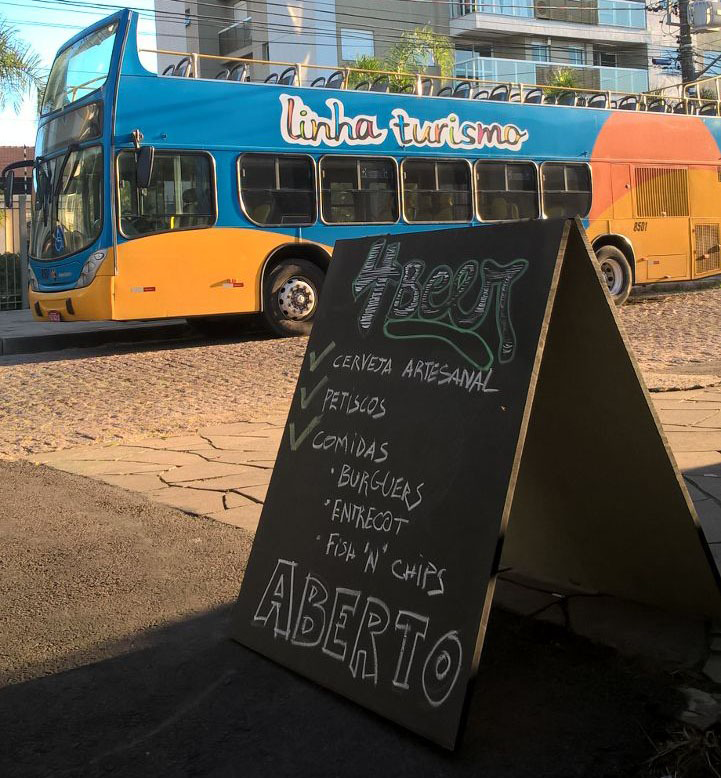 linha turismo
8501
4Beer
CERVEJA ARTESANAL
PETISCOS
COMIDAS
• BURGUERS
• ENTRECOT
• FISH 'N' CHIPS
ABERTO